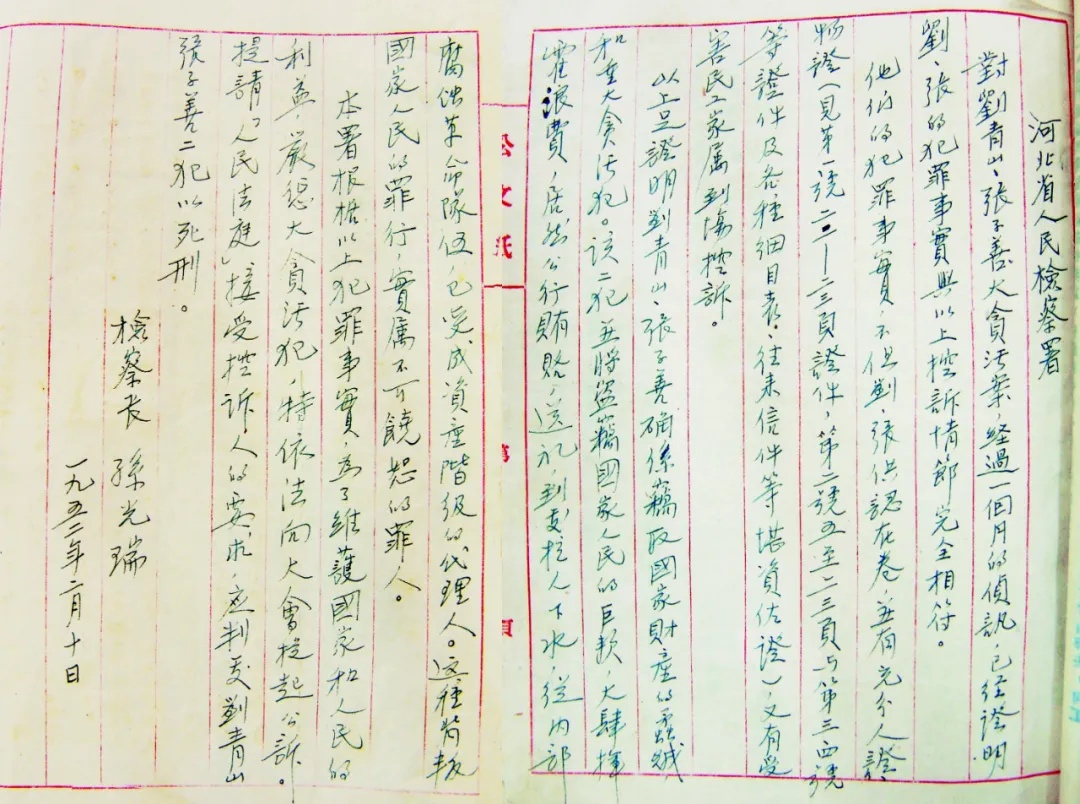 河北省人民檢察署
對劉青山、張子善大貪污案，經過一個月的偵訊，已經證明
劉、張的犯罪事實與以上控訴情節完全相符。
他們的犯罪事實，不但劉、張供認在卷，並有充分人證
物證（見第一號二二—二三頁證件，第二號五至二三頁与第三四號
等證件及各種細目表，往来信件等堪資佐證），又有受
害民工家属到場控訴。
以上足證明劉青山、張子善确係竊取國家財產的蟊賊
和重大貪污犯。該二犯並將盜竊國家人民的巨款，大肆揮
霍浪費，居然公行賄賂，送礼，到處拉人下水，從内部
腐蚀革命隊伍，已变成資產階级的代理人。這種背叛
國家人民的罪行，實属不可饒恕的罪人。
本署根据以上犯罪事實，為了維護國家和人民的
利益，嚴惩大貪污犯，特依法向大會提起公訴。
提請「人民法庭」接受控訴人的要求，应判处劉青山
張子善二犯以死刑。
檢察长 孫光瑞
一九五二年二月十日
公文紙
第
頁